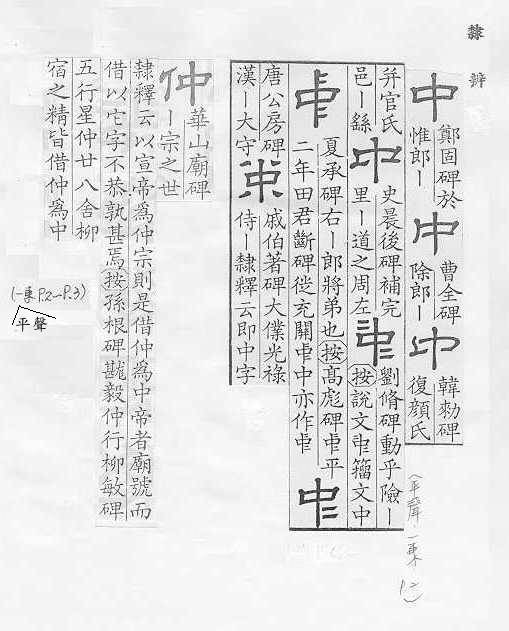 隸辨
中 鄭固碑於
惟郎丨 中 曹全碑
除郎丨 中 韓勑碑
復顏氏
并官氏
邑丨繇 中 史晨後碑補完
里丨道之周左 𠁩 劉脩碑動乎險丨
按說文𠁩籀文中
𠁩 夏承碑右丨郎將弟也按高彪碑𠁩平
二年田君斷碑從充闕𠁩中亦作𠁩 𠁩
唐公房碑
漢丨大守 戚伯著碑大僕光祿
侍丨隸釋云即中字
仲 華山廟碑
丨宗之世
隸釋云以宣帝為仲宗則是借仲為中帝者廟號而
借以它字不恭孰甚焉按孫根碑戡毅仲行柳敏碑
五行星仲廿八舍柳
宿之精皆借仲為中
(一東 P.2—P.3)
平聲
(平聲·一東 P2)